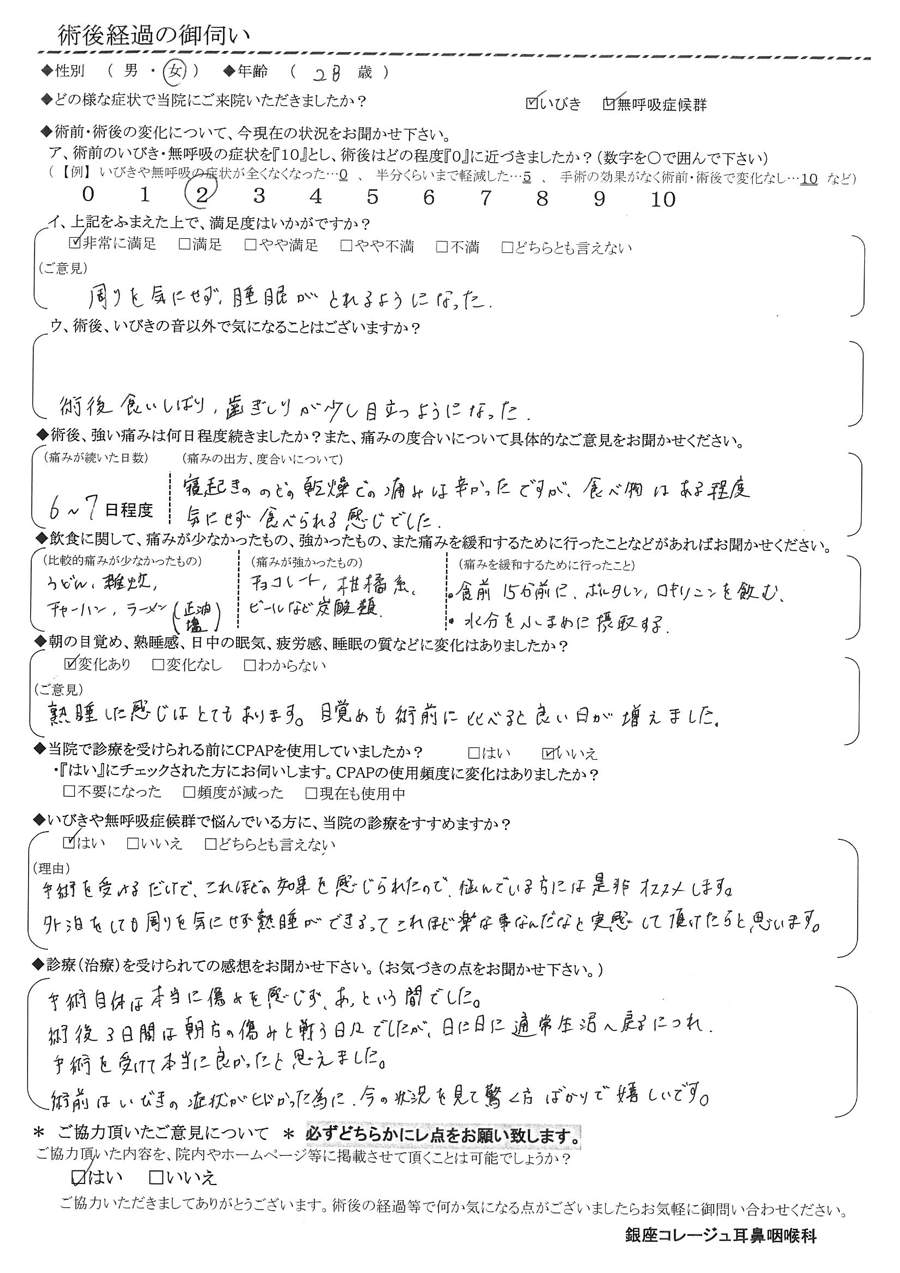 術後経過の御伺い
◆性別 ( 男 ・ 女 ) ◆年齢 ( 28 歳 )
◆どの様な症状で当院にご来院いただきましたか? ☑いびき ☑無呼吸症候群
◆術前・術後の変化について、今現在の状況をお聞かせ下さい。
ア、術前のいびき・無呼吸の症状を『10』とし、術後はどの程度『0』に近づきましたか?(数字を〇で囲んで下さい)
(【例】 いびきや無呼吸の症状が全くなくなった…0 、 半分くらいまで軽減した…5 、 手術の効果がなく術前・術後で変化なし…10 など)
0 1 2 3 4 5 6 7 8 9 10
イ、上記をふまえた上で、満足度はいかがですか?
☑非常に満足 □満足 □やや満足 □やや不満 □不満 □どちらとも言えない
(ご意見)
周りを気にせず、睡眠がとれるようになった.
ウ、術後、いびきの音以外で気になることはございますか?
術後食いしばり, 歯ぎしりが少し目立つようになった.
◆術後、強い痛みは何日程度続きましたか?また、痛みの度合いについて具体的なご意見をお聞かせください。
(痛みが続いた日数) (痛みの出方、度合いについて)
寝起きののどの乾燥での痛みは辛かったですが、食べ物はある程度
6〜7日程度 気にせず食べられる感じでした.
◆飲食に関して、痛みが少なかったもの、強かったもの、また痛みを緩和するために行ったことなどがあればお聞かせください。
(比較的痛みが少なかったもの) (痛みが強かったもの) (痛みを緩和するために行ったこと)
うどん, 雑炊, チョコレート, 柑橘系, ・食前15分前に、ボルタレン, ロキソニンを飲む、
チャーハン, ラーメン(正油 塩) ビールなど炭酸類. ・水分をこまめに摂取する.
◆朝の目覚め、熟睡感、日中の眠気、疲労感、睡眠の質などに変化はありましたか?
☑変化あり □変化なし □わからない
(ご意見)
熟睡した感じはとてもあります。目覚めも術前に比べると良い日が増えました。
◆当院で診療を受けられる前にCPAPを使用していましたか? □はい ☑いいえ
・『はい』にチェックされた方にお伺いします。CPAPの使用頻度に変化はありましたか?
□不要になった □頻度が減った □現在も使用中
◆いびきや無呼吸症候群で悩んでいる方に、当院の診療をすすめますか?
☑はい □いいえ □どちらとも言えない
(理由)
手術を受けるだけで、これほどの効果を感じられたので、悩んでいる方には是非オススメします。
外泊をしても周りを気にせず熟睡ができるってこれほど楽な事なんだなと実感して頂けたらと思います。
◆診療(治療)を受けられての感想をお聞かせ下さい。(お気づきの点をお聞かせ下さい。)
手術自体は本当に傷みを感じず、あっという間でした。
術後3日間は朝方の傷みと戦う日々でしたが、日に日に通常生活へ戻るにつれ、
手術を受けて本当に良かったと思えました。
術前はいびきの症状がヒドかった為に、今の状況を見て驚く方ばかりで嬉しいです。
＊ ご協力頂いたご意見について ＊ 必ずどちらかにレ点をお願い致します。
ご協力頂いた内容を、院内やホームページ等に掲載させて頂くことは可能でしょうか?
☑はい □いいえ
ご協力いただきましてありがとうございます。術後の経過等で何か気になる点がございましたらお気軽に御問い合わせください。
銀座コレージュ耳鼻咽喉科